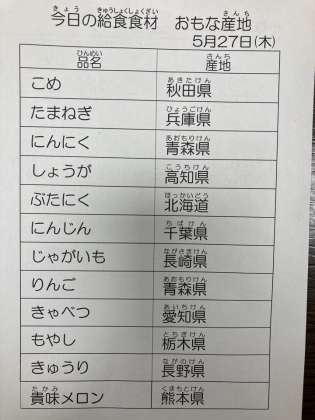 今日の給食食材 おもな産地
5月27日(木)
品名 産地
こめ 秋田県
たまねぎ 兵庫県
にんにく 青森県
しょうが 高知県
ぶたにく 北海道
にんじん 千葉県
じゃがいも 長崎県
りんご 青森県
きゃべつ 愛知県
もやし 栃木県
きゅうり 長野県
貴味メロン 熊本県